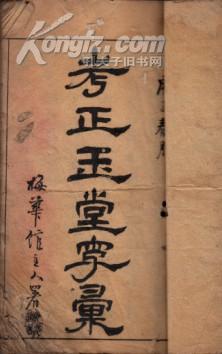 Kongfz.com
孔夫子旧书网
考正玉堂字彙
梅華館主人署